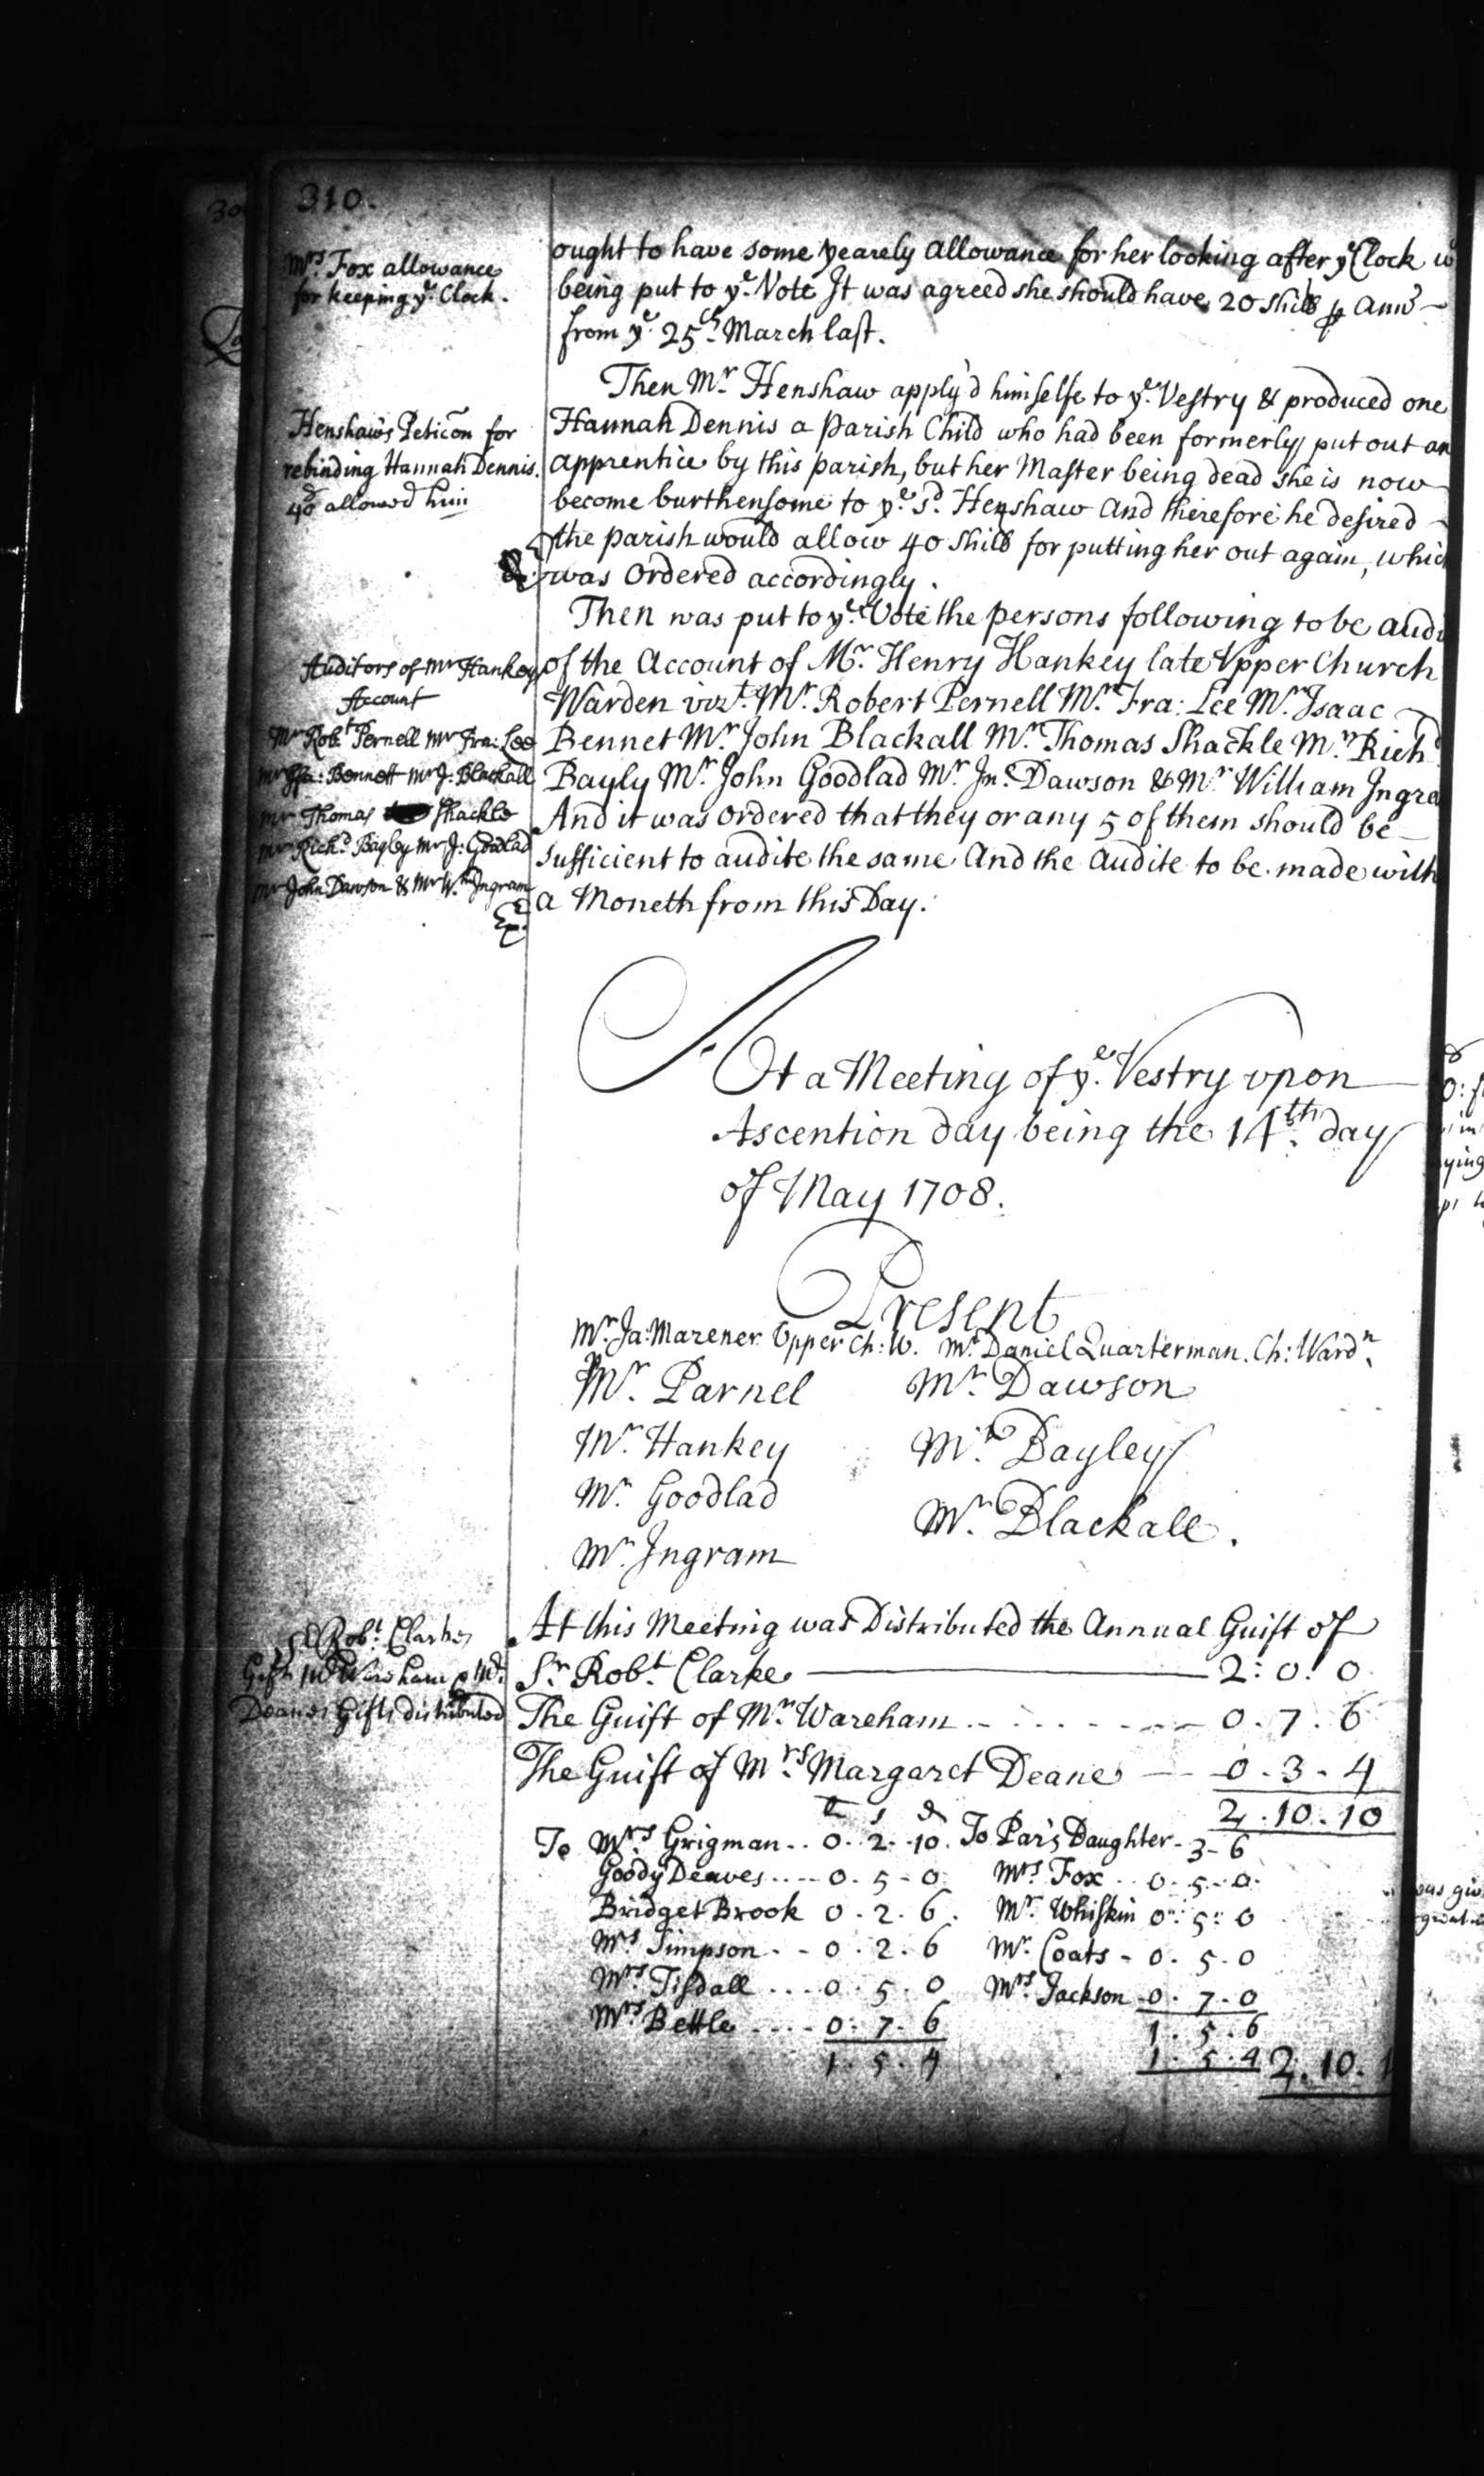 310.
Mrs. Fox allowance
for keeping ye. Clock.
ought to have some yearely allowance for her looking after ye Clock w
being put to ye. Vote It was agreed she should have 20 shills p Anno
from ye. 25th. March last.
Henshaw's Peticon for
rebinding Hannah Dennis.
40s allowed him
Then Mr. Henshaw apply'd himselfe to ye. Vestry & produced one
Hannah Dennis a parish Child who had been formerly put out an
apprentice by this parish, but her Master being dead she is now
become burthensome to ye. sd. Henshaw and therefore he desired
the parish would allow 40 shills for putting her out again, whic
was Ordered accordingly.
Auditors of Mr Hankey
Account
Mr Robt Pernell Mr Fra: Lee
Mr Isa: Bennett Mr J: Blackall
Mr Thomas Shackle
Mr Richd Bayley Mr J: Goodlad
Mr John Dawson & Mr Wm Ingram
Then was put to ye. Vote the persons following to be audi
of the Account of Mr. Henry Hankey late Vpper Church
Warden vizt. Mr. Robert Pernell Mr. Fra: Lee Mr. Isaac
Bennet Mr. John Blackall Mr. Thomas Shackle Mr. Richd
Bayly Mr. John Goodlad Mr. Jno. Dawson & Mr William Ingra
And it was Ordered that they or any 5 of them should be
sufficient to audite the same And the Audite to be made with
a Moneth from this Day.
At a Meeting of ye. Vestry vpon
Ascention day being the 14th. day
of May 1708.
Present
Mr. Ja: Marener Vpper Ch: W. Mr. Daniel Quarterman. Ch: Wardn.
Mr. Parnel Mr. Dawson
Mr. Hankey Mr. Bayley
Mr. Goodlad Mr. Blackall.
Mr. Ingram
Sr Robt. Clarkes
Gift Mr Wareham & Mrs.
Deanes Gifts distributed
At this Meeting was Distributed the Annual Guift of
Sr. Robt. Clarke 2: 0: 0
The Guift of Mr. Wareham 0. 7. 6
The Guift of Mrs. Margaret Deane 0. 3. 4
2. 10. 10
l s d
To Mrs Grigman.. 0. 2. 10. To Par's Daughter - 3 - 6
Goody Deaves 0. 5. 0. Mrs Fox 0. 5. 0.
Bridget Brook 0. 2. 6. Mr. Whiskin 0: 5: 0
Mrs Simpson 0. 2. 6 Mr. Coats 0. 5. 0
Mrs Tisdall 0. 5. 0 Mrs. Jackson 0. 7. 0
Mrs Bettle 0. 7. 6 1. 5. 6
1. 5. 4 1. 5. 4 2. 10. 1